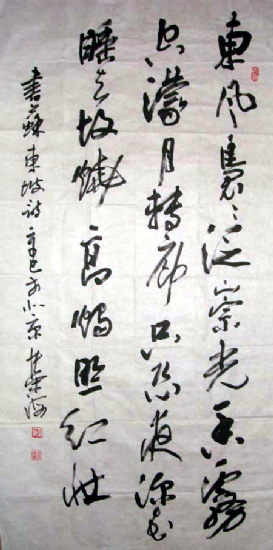 東風裊裊泛崇光香霧
空濛月轉廊只恐夜深花
睡去故燒高燭照紅妝
書蘇東坡詩辛巳於北京榮海